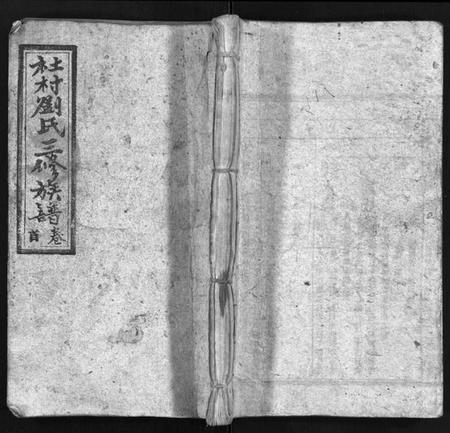 杜村劉氏三修族譜卷首